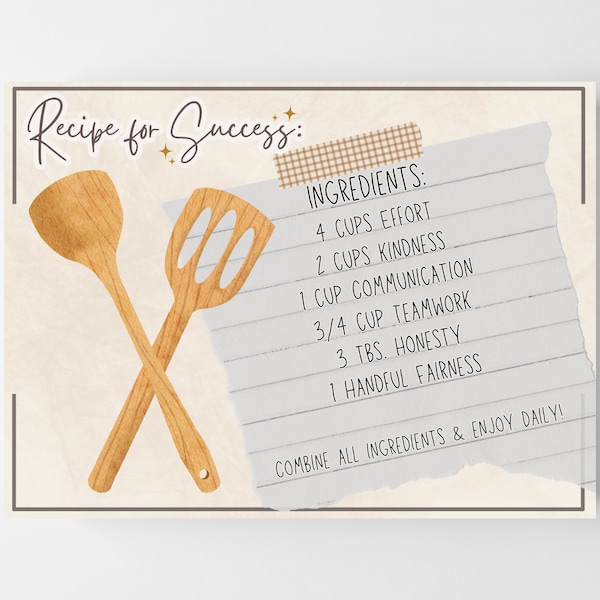 Recipe for Success:
INGREDIENTS:
4 CUPS EFFORT
2 CUPS KINDNESS
1 CUP COMMUNICATION
3/4 CUP TEAMWORK
3 TBS. HONESTY
1 HANDFUL FAIRNESS
COMBINE ALL INGREDIENTS & ENJOY DAILY!